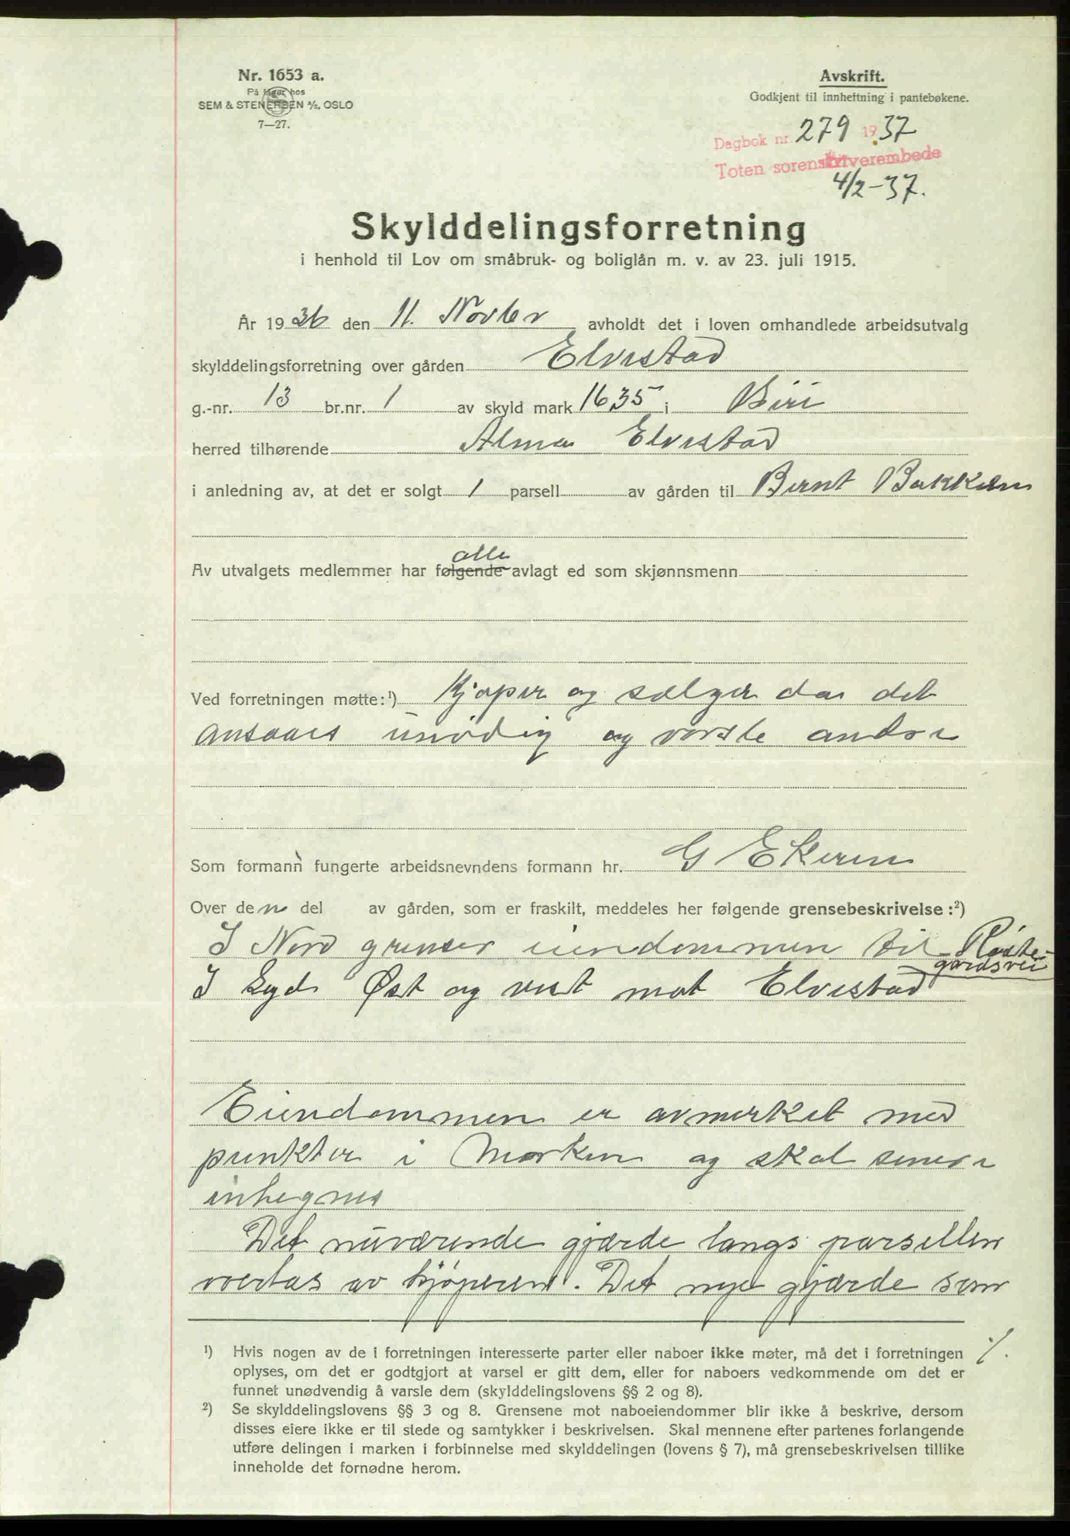 Nr. 1653 a.
På lager hos
SEM & STENERSEN A/S. OSLO
7—27.
Avskrift.
Godkjent til innheftning i pantebøkene.
Dagbok nr. 279 1937
Toten sorenskriverembede
4/2-37.
Skylddelingsforretning
i henhold til Lov om småbruk- og boliglån m. v. av 23. juli 1915.
År 1936 den 11. Novbr avholdt det i loven omhandlede arbeidsutvalg
skylddelingsforretning over gården Elvestad
g.-nr. 13 br.nr. 1 av skyld mark 1635 i Biri
herred tilhørende Alma Elvestad
i anledning av, at det er solgt 1 parsell av gården til Bernt Bakken
alle
Av utvalgets medlemmer har følgende avlagt ed som skjønnsmenn
Ved forretningen møtte:¹) Kjøper og sælger da det
ansaaes unødig og varsle andre
Som formann fungerte arbeidsnevndens formann hr. G Ekeren
Over den del av gården, som er fraskilt, meddeles her følgende grensebeskrivelse:²)
I Nord grenser eiendommen til Røste-
gardsvei
I Syd Øst og vest mot Elvestad
Eiendommen er avmerket med
punkter i Marken og skal senere
inhegnes
Det nuværende gjærde langs parsellen
overtas av kjøperen. Det nye gjærde som
¹) Hvis nogen av de i forretningen interesserte parter eller naboer ikke møter, må det i forretningen
oplyses, om det er godtgjort at varsel er gitt dem, eller for naboers vedkommende om det er
funnet unødvendig å varsle dem (skylddelingslovens §§ 2 og 8).
²) Se skylddelingslovens §§ 3 og 8. Grensene mot naboeiendommer blir ikke å beskrive, dersom
disses eiere ikke er til stede og samtykker i beskrivelsen. Skal mennene efter partenes forlangende
utføre delingen i marken i forbinnelse med skylddelingen (lovens § 7), må grensebeskrivelsen tillike
inneholde det fornødne herom.
·/.